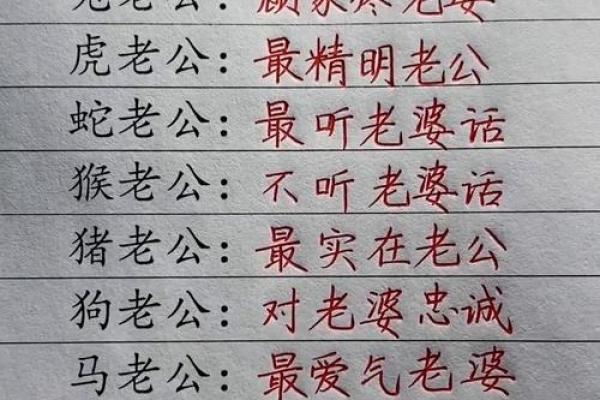 老公：顾家疼老婆
虎老公：最精明老公
蛇老公：最听老婆话
猴老公：不听老婆话
猪老公：最实在老公
狗老公：对老婆忠诚
马老公：最爱气老婆